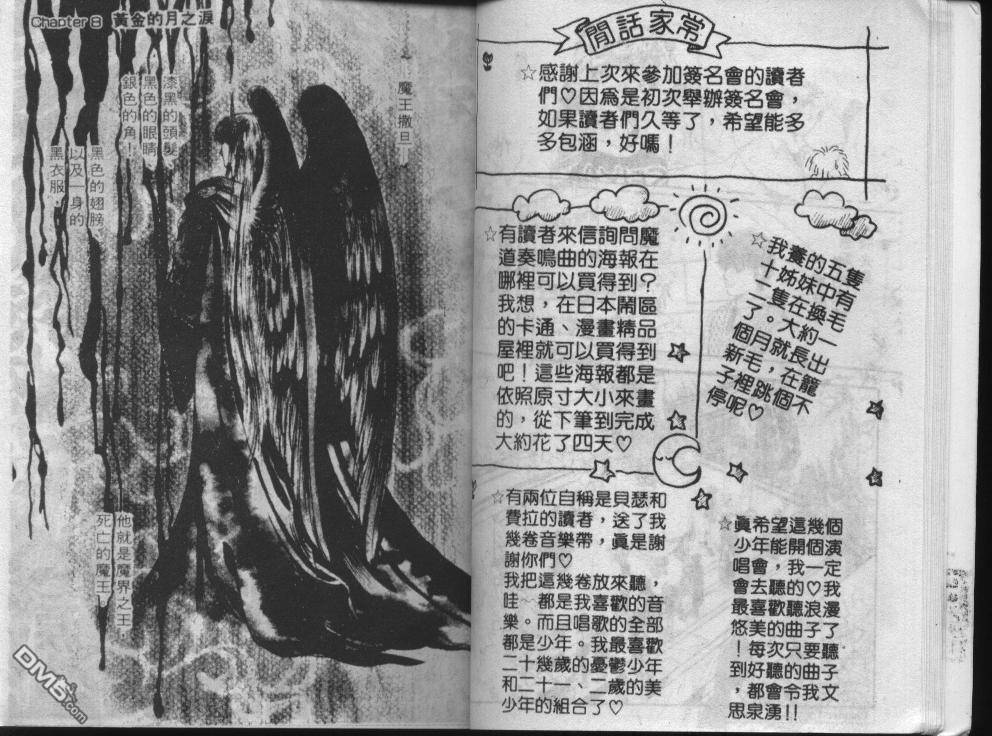 Chapter 8 黃金的月之淚
魔王撒旦──
漆黑的頭髮
黑色的眼睛、
銀色的角！
黑色的翅膀
以及一身的
黑衣服，
他就是魔界之王，
死亡的魔王、
DM5.com
閒話家常
☆感謝上次來參加簽名會的讀者
們♡因為是初次舉辦簽名會，
如果讀者們久等了，希望能多
多包涵，好嗎！
☆有讀者來信詢問魔
道奏鳴曲的海報在
哪裡可以買得到？
我想，在日本鬧區
的卡通、漫畫精品
屋裡就可以買得到
吧！這些海報都是
依照原寸大小來畫
的，從下筆到完成
大約花了四天♡
☆我養的五隻
十姊妹中有
二隻在換毛
了。大約一
個月就長出
新毛，在籠
子裡跳個不
停呢♡
☆有兩位自稱是貝瑟和
費拉的讀者，送了我
幾卷音樂帶，真是謝
謝你們♡
我把這幾卷放來聽，
哇~都是我喜歡的音
樂。而且唱歌的全部
都是少年。我最喜歡
二十幾歲的憂鬱少年
和二十一、二歲的美
少年的組合了♡
☆真希望這幾個
少年能開個演
唱會，我一定
會去聽的♡我
最喜歡聽浪漫
悠美的曲子了
！每次只要聽
到好聽的曲子
，都會令我文
思泉湧！！